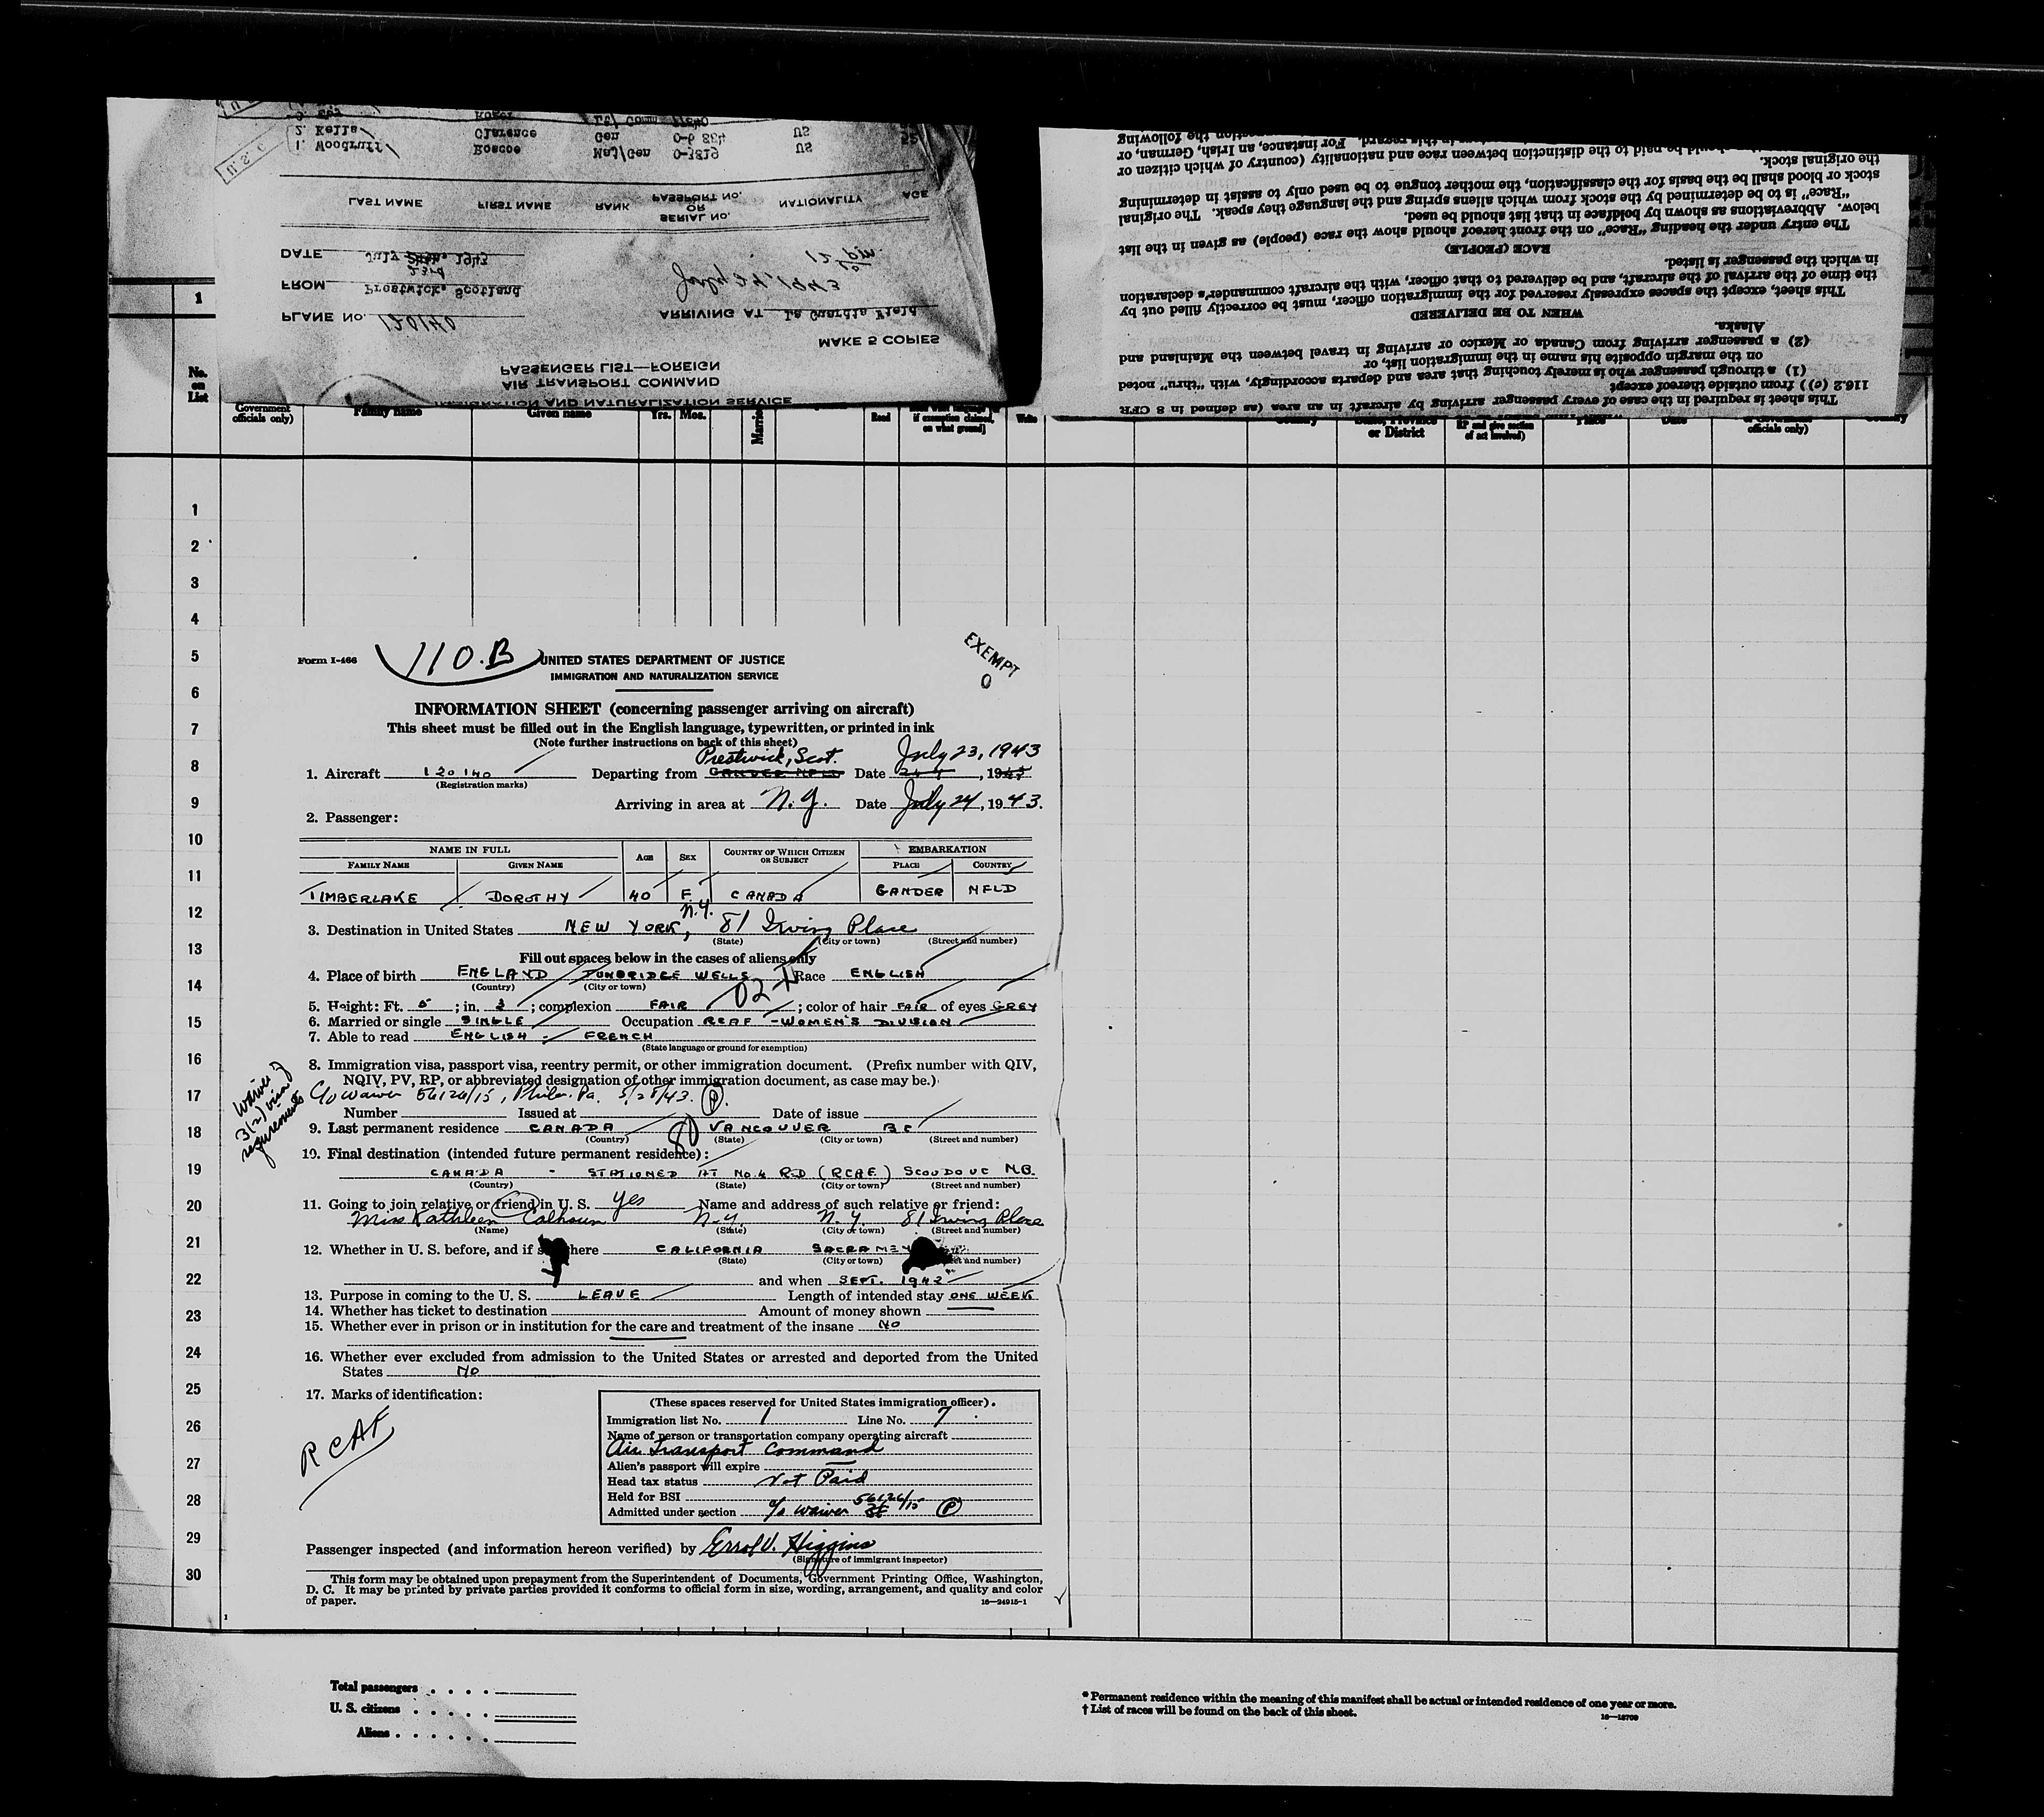 U.S.C.
3. Eby Roger Lt/ Comm
2. Kells Clarence Gen 0-6 854 US
1. Woodruff Roscoe Maj/Gen 0-3819 US 52
LAST NAME FIRST NAME RANK SERIAL NO. OR PASSPORT NO. NATIONALITY AGE
DATE July 23rd, 1943
FROM Prestwick, Scotland July 24, 1943 12 pm
PLANE NO. 120140 ARRIVING AT La Guardia Field
MAKE 5 COPIES
PASSENGER LIST—FOREIGN
AIR TRANSPORT COMMAND
IMMIGRATION AND NATURALIZATION SERVICE
This sheet is required in the case of every passenger arriving by aircraft in an area (as defined in 8 CFR
116.2 (c)) from outside thereof except
(1) a through passenger who is merely touching that area and departs accordingly, with "thru" noted
on the margin opposite his name in the immigration list, or
(2) a passenger arriving from Canada or Mexico or arriving in travel between the Mainland and
Alaska.
WHEN TO BE DELIVERED
This sheet, except the spaces expressly reserved for the immigration officer, must be correctly filled out by
the time of the arrival of the aircraft, and be delivered to that officer, with the aircraft commander's declaration
in which the passenger is listed.
RACE (PEOPLE)
The entry under the heading "Race" on the front hereof should show the race (people) as given in the list
below. Abbreviations as shown by boldface in that list should be used.
"Race" is to be determined by the stock from which aliens spring and the language they speak. The original
stock or blood shall be the basis for the classification, the mother tongue to be used only to assist in determining
the original stock.
should be paid to the distinction between race and nationality (country of which citizen or
in this regard. For instance, an Irish, German, or
the following
1
No. on List
Government officials only) Family name Given name Yrs. Mos. Married Read if exemption claimed, on what ground] Write Country State, Province or District RP and give section of act involved) Place Date officials only) Country
1
2
3
4
5
6
7
8
9
10
11
12
13
14
15
16
17
18
19
20
21
22
23
24
25
26
27
28
29
30
Form I-466 110.B UNITED STATES DEPARTMENT OF JUSTICE EXEMPT
IMMIGRATION AND NATURALIZATION SERVICE 0
INFORMATION SHEET (concerning passenger arriving on aircraft)
This sheet must be filled out in the English language, typewritten, or printed in ink
(Note further instructions on back of this sheet)
Prestwick, Scot. July 23, 1943
1. Aircraft 120140 Departing from GANDER NFLD Date 24, 1943
(Registration marks)
Arriving in area at N.Y. Date July 24, 1943.
2. Passenger:
NAME IN FULL AGE SEX COUNTRY OF WHICH CITIZEN OR SUBJECT EMBARKATION
FAMILY NAME GIVEN NAME PLACE COUNTRY
TIMBERLAKE DOROTHY 40 F. CANADA GANDER NFLD
N.Y.
3. Destination in United States NEW YORK, 81 Irving Place
(State) (City or town) (Street and number)
Fill out spaces below in the cases of aliens only
4. Place of birth ENGLAND TUNBRIDGE WELLS Race ENGLISH
(Country) (City or town)
5. Height: Ft. 5; in. 3; complexion FAIR; color of hair FAIR of eyes GREY
6. Married or single SINGLE Occupation RCAF - WOMEN'S DIVISION
7. Able to read ENGLISH - FRENCH
(State language or ground for exemption)
8. Immigration visa, passport visa, reentry permit, or other immigration document. (Prefix number with QIV,
NQIV, PV, RP, or abbreviated designation of other immigration document, as case may be.)
waiver of 3(2) visa requirements
waiver 56126/15, Phila. Pa. 5/28/43. (P).
Number Issued at Date of issue
9. Last permanent residence CANADA VANCOUVER BC
(Country) (State) (City or town) (Street and number)
10. Final destination (intended future permanent residence):
CANADA - STATIONED AT No. 4 RD (RCAF) SCOUDOUC N.B.
(Country) (State) (City or town) (Street and number)
11. Going to join relative or friend in U. S. Yes Name and address of such relative or friend:
Miss Kathleen Calhoun N.Y. N.Y. 81 Irving Place
(Name) (State) (City or town) (Street and number)
12. Whether in U. S. before, and if so, where CALIFORNIA SACRAMEN
(State) (City or town) (Street and number)
and when SEPT. 1942
13. Purpose in coming to the U. S. LEAVE Length of intended stay ONE WEEK
14. Whether has ticket to destination Amount of money shown
15. Whether ever in prison or in institution for the care and treatment of the insane NO
16. Whether ever excluded from admission to the United States or arrested and deported from the United
States NO
17. Marks of identification:
RCAF
(These spaces reserved for United States immigration officer).
Immigration list No. 1 Line No. 7
Name of person or transportation company operating aircraft
Air Transport Command
Alien's passport will expire —
Head tax status Not Paid
Held for BSI
Admitted under section waiver 56126/15 (P)
Passenger inspected (and information hereon verified) by Errol V. Higgins
(Signature of immigrant inspector)
This form may be obtained upon prepayment from the Superintendent of Documents, Government Printing Office, Washington,
D. C. It may be printed by private parties provided it conforms to official form in size, wording, arrangement, and quality and color
of paper. 16—24915-1
1
Total passengers . . . .
U. S. citizens . . . . .
Aliens . . . . . .
* Permanent residence within the meaning of this manifest shall be actual or intended residence of one year or more.
† List of races will be found on the back of this sheet.
16—18709